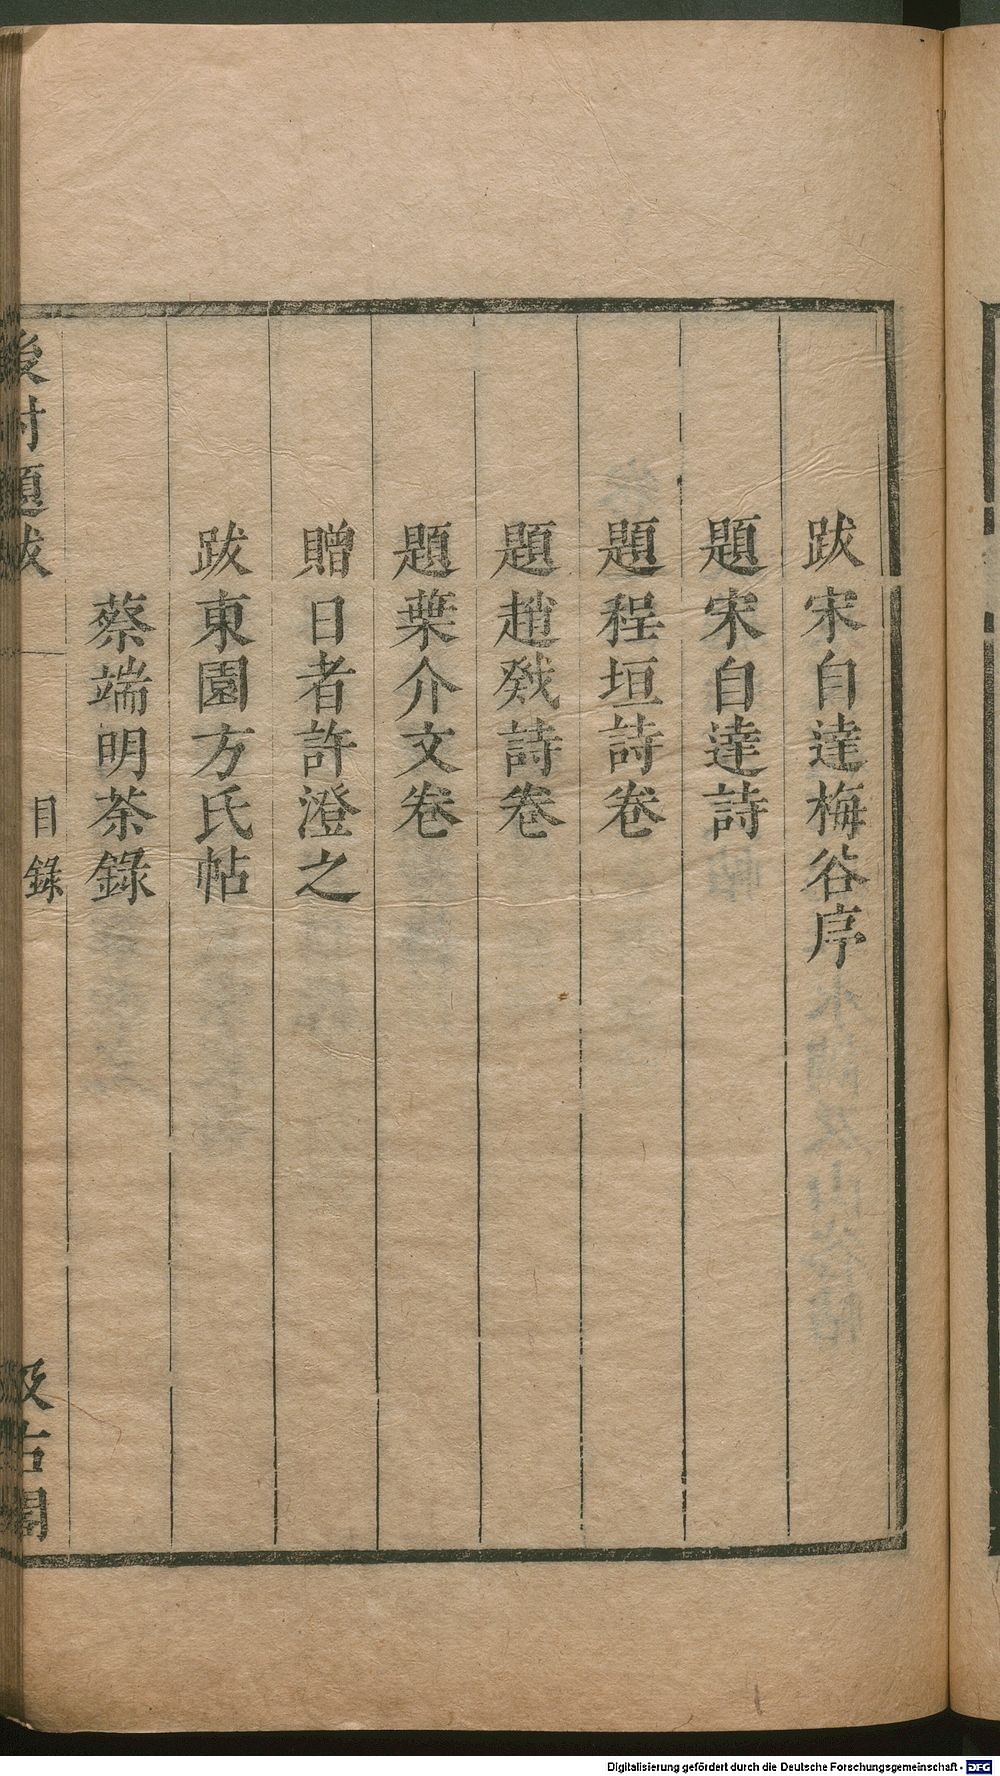 跋宋自達梅谷序
題宋自達詩
題程垣詩卷
題趙戣詩卷
題葉介文卷
贈日者許澄之
跋東園方氏帖
蔡端明茶錄
後村題跋
目錄
汲古閣
Digitalisierung gefördert durch die Deutsche Forschungsgemeinschaft - DFG